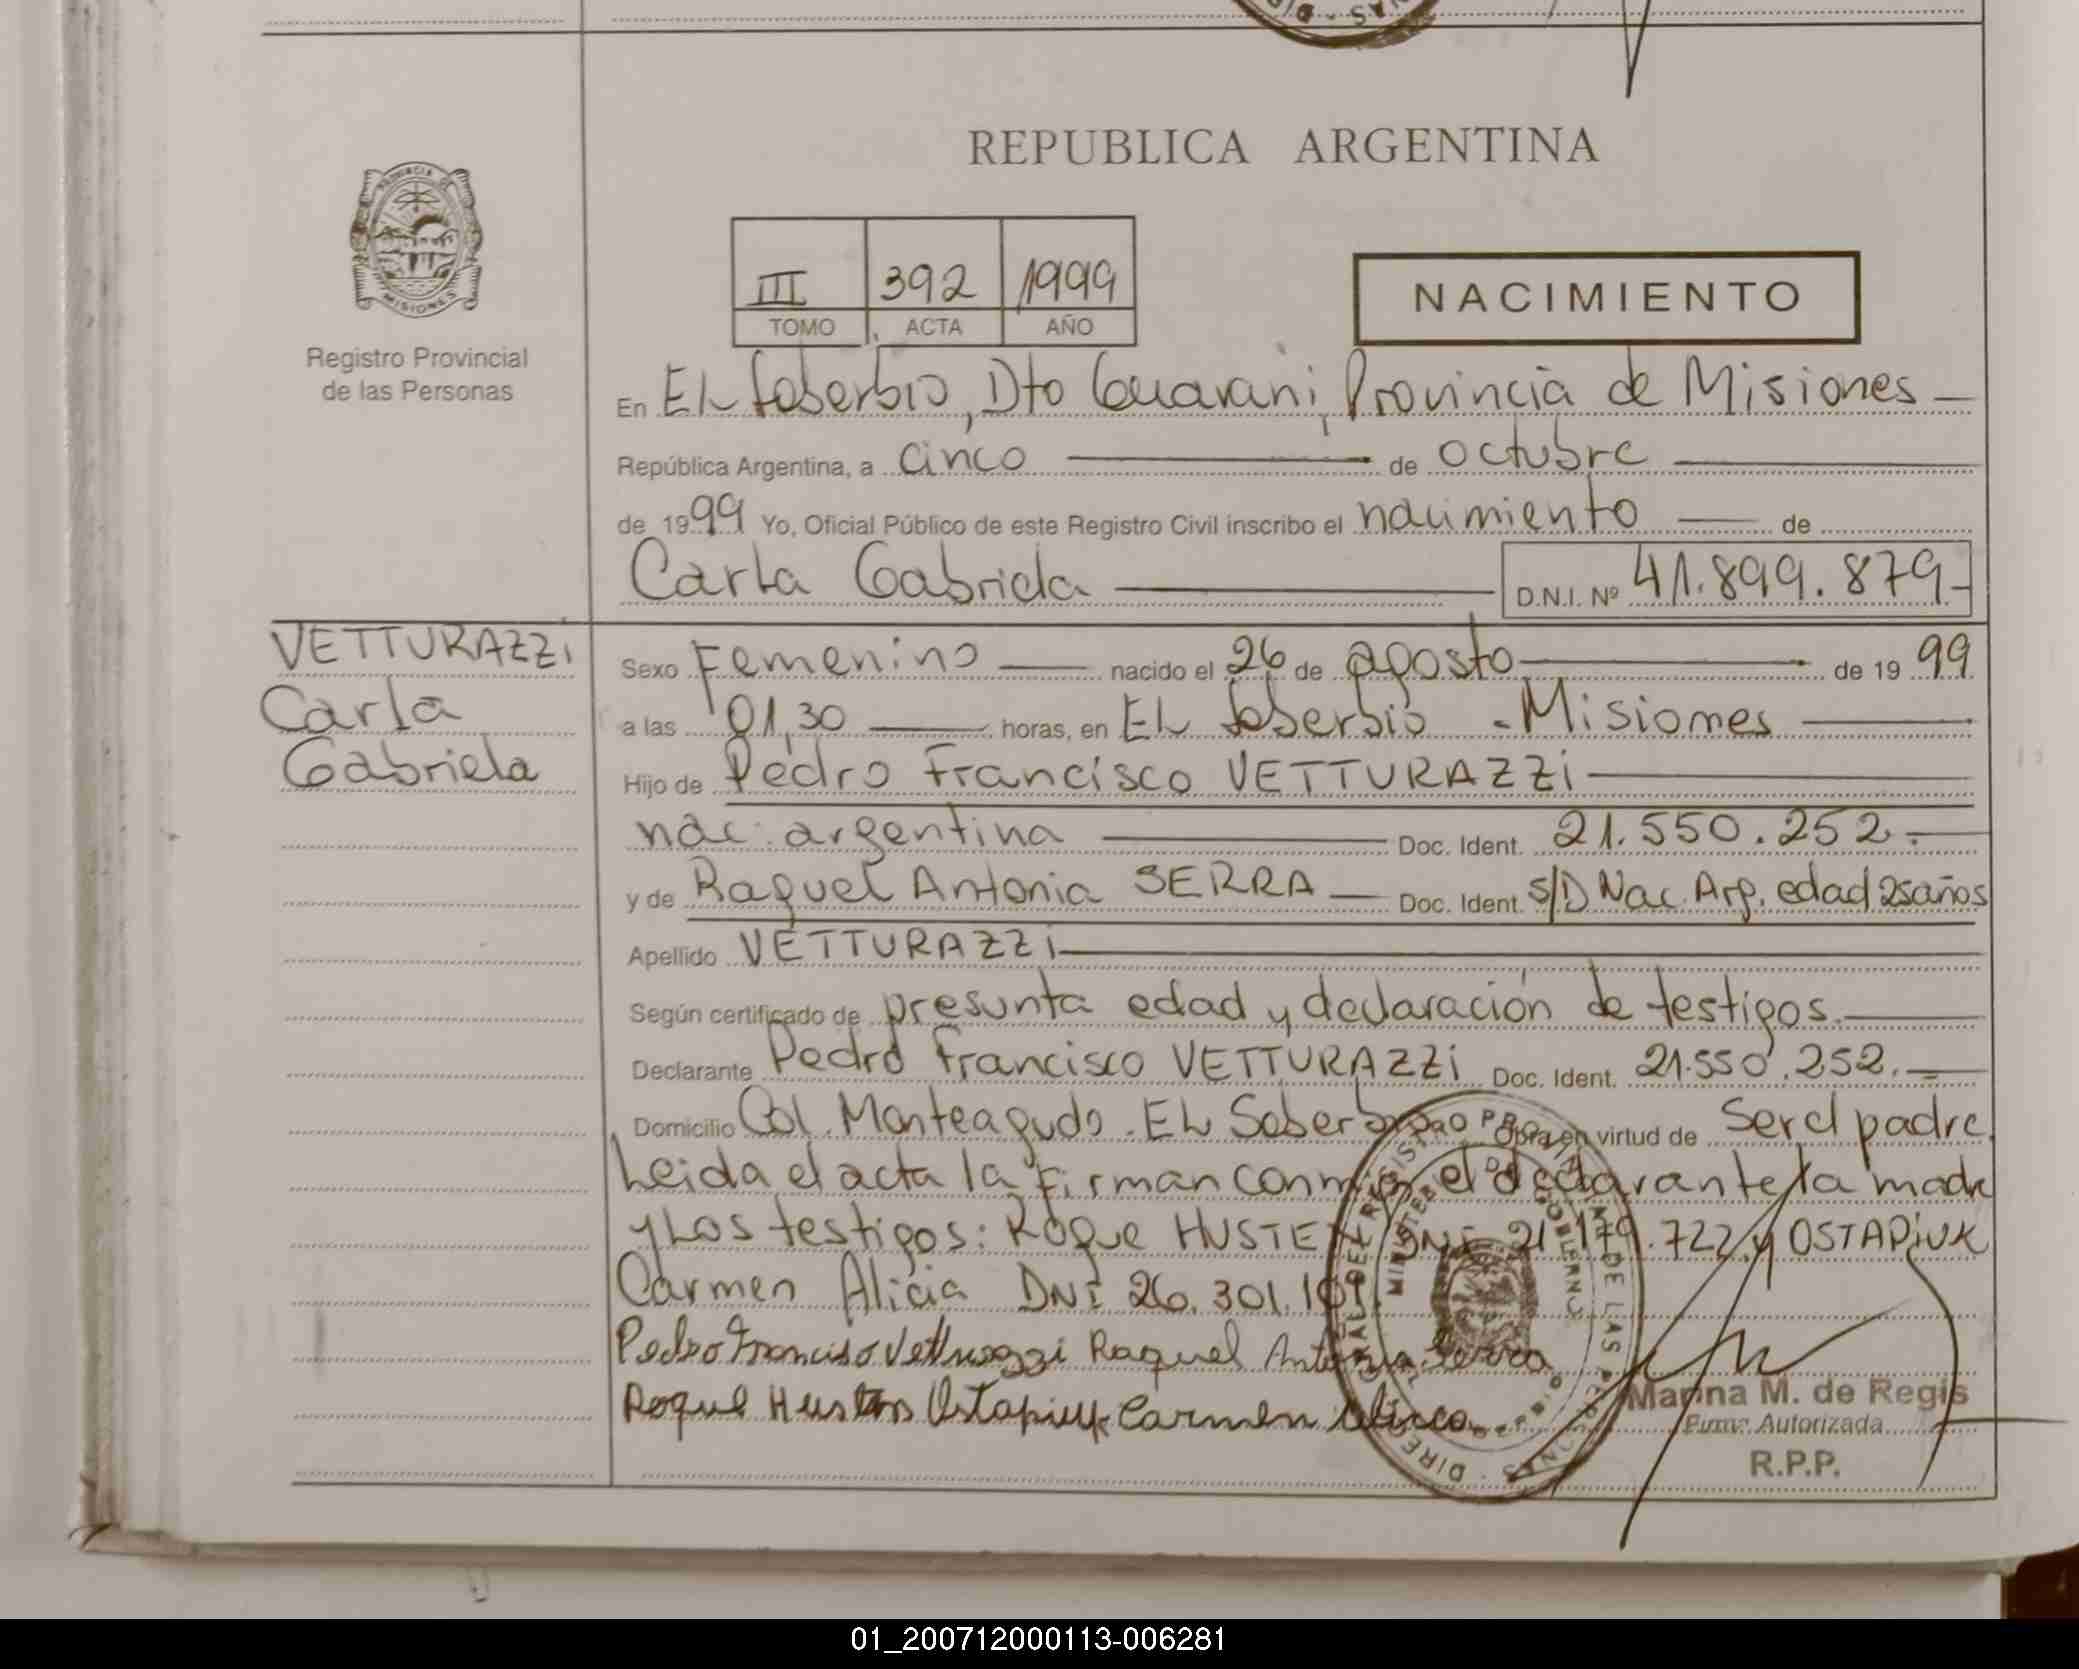 REPUBLICA ARGENTINA
PROVINCIA DE
MISIONES
Registro Provincial
de las Personas
III 392 1999
TOMO ACTA AÑO
NACIMIENTO
En El Soberbio, Dto Guarani, Provincia de Misiones
República Argentina, a cinco de octubre
de 1999 Yo, Oficial Público de este Registro Civil inscribo el nacimiento de
Carla Gabriela D.N.I. Nº 41.899.879
VETTURAZZi
Carla
Gabriela
Sexo Femenino nacido el 26 de agosto de 1999
a las 01,30 horas, en El Soberbio - Misiones
Hijo de Pedro Francisco VETTURAZZi
nac. argentina Doc. Ident. 21.550.252.-
y de Raquel Antonia SERRA Doc. Ident. S/D Nac. Arg. edad 25 años
Apellido VETTURAZZi
Según certificado de presunta edad y declaración de testigos.
Declarante Pedro Francisco VETTURAZZi Doc. Ident. 21.550.252.-
Domicilio Col. Monteagudo - El Soberbio Obra en virtud de Ser el padre.
Leida el acta la firman conmigo el declarante, la madre
y Los testigos: Roque HUSTEN DNI 21.179.722 y OSTAPiUK
Carmen Alicia DNI 26.301.
Pedro Francisco Vetturazzi Raquel Antonia Serra
Roque Ostapiuk Carmen Alicia
Marina M. de Regis
Firma Autorizada
R.P.P.
01_200712000113-006281